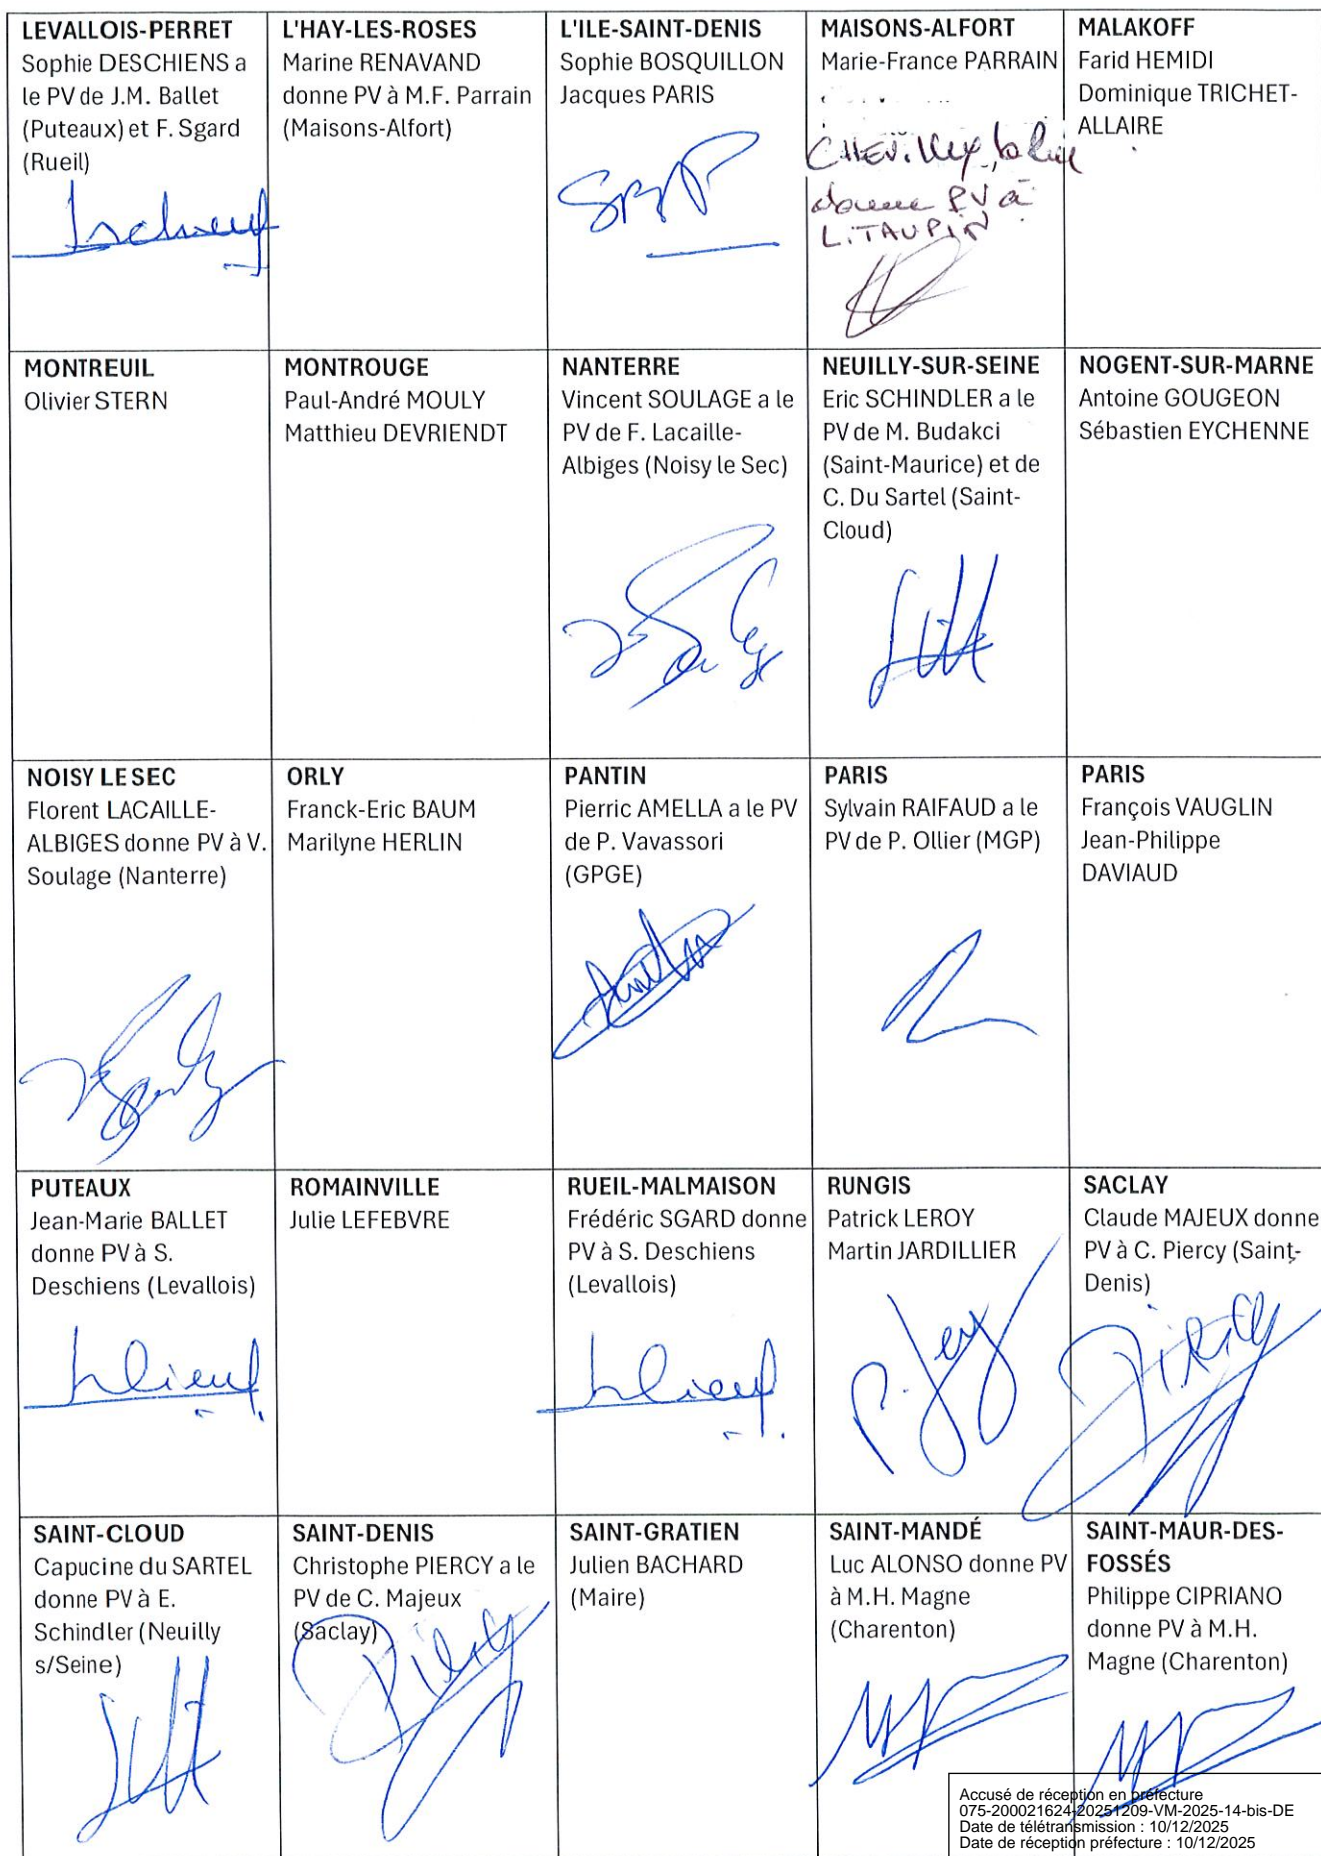 LEVALLOIS-PERRET
Sophie DESCHIENS a
le PV de J.M. Ballet
(Puteaux) et F. Sgard
(Rueil)
L'HAY-LES-ROSES
Marine RENAVAND
donne PV à M.F. Parrain
(Maisons-Alfort)
L'ILE-SAINT-DENIS
Sophie BOSQUILLON
Jacques PARIS
MAISONS-ALFORT
Marie-France PARRAIN
donne PV à
L. TAUPIN
MALAKOFF
Farid HEMIDI
Dominique TRICHET-
ALLAIRE
MONTREUIL
Olivier STERN
MONTROUGE
Paul-André MOULY
Matthieu DEVRIENDT
NANTERRE
Vincent SOULAGE a le
PV de F. Lacaille-
Albiges (Noisy le Sec)
NEUILLY-SUR-SEINE
Eric SCHINDLER a le
PV de M. Budakci
(Saint-Maurice) et de
C. Du Sartel (Saint-
Cloud)
NOGENT-SUR-MARNE
Antoine GOUGEON
Sébastien EYCHENNE
NOISY LE SEC
Florent LACAILLE-
ALBIGES donne PV à V.
Soulage (Nanterre)
ORLY
Franck-Eric BAUM
Marilyne HERLIN
PANTIN
Pierric AMELLA a le PV
de P. Vavassori
(GPGE)
PARIS
Sylvain RAIFAUD a le
PV de P. Ollier (MGP)
PARIS
François VAUGLIN
Jean-Philippe
DAVIAUD
PUTEAUX
Jean-Marie BALLET
donne PV à S.
Deschiens (Levallois)
ROMAINVILLE
Julie LEFEBVRE
RUEIL-MALMAISON
Frédéric SGARD donne
PV à S. Deschiens
(Levallois)
RUNGIS
Patrick LEROY
Martin JARDILLIER
SACLAY
Claude MAJEUX donne
PV à C. Piercy (Saint-
Denis)
SAINT-CLOUD
Capucine du SARTEL
donne PV à E.
Schindler (Neuilly
s/Seine)
SAINT-DENIS
Christophe PIERCY a le
PV de C. Majeux
(Saclay)
SAINT-GRATIEN
Julien BACHARD
(Maire)
SAINT-MANDÉ
Luc ALONSO donne PV
à M.H. Magne
(Charenton)
SAINT-MAUR-DES-
FOSSÉS
Philippe CIPRIANO
donne PV à M.H.
Magne (Charenton)
Accusé de réception en préfecture
075-200021624-20251209-VM-2025-14-bis-DE
Date de télétransmission : 10/12/2025
Date de réception préfecture : 10/12/2025